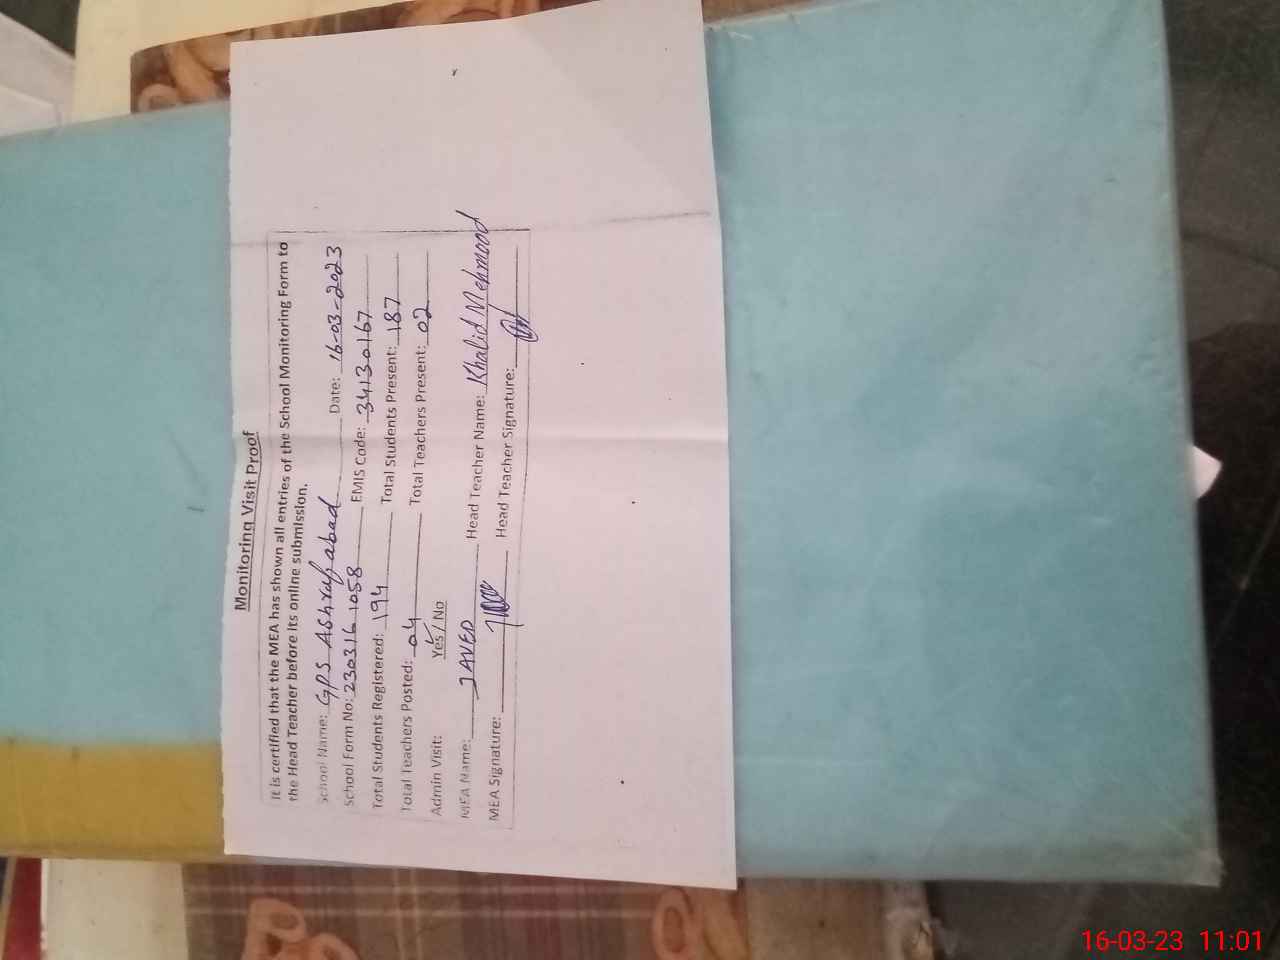 Monitoring Visit Proof
It is certified that the MEA has shown all entries of the School Monitoring Form to
the Head Teacher before its online submission.
School Name: GPS Ashrafabad Date: 16-03-2023
School Form No: 230316 1058 EMIS Code: 34130167
Total Students Registered: 194 Total Students Present: 187
Total Teachers Posted: 04 Total Teachers Present: 02
Admin Visit: Yes / No
MEA Name: JAVED Head Teacher Name: Khalid Mehmood
MEA Signature: Head Teacher Signature:
16-03-23 11:01